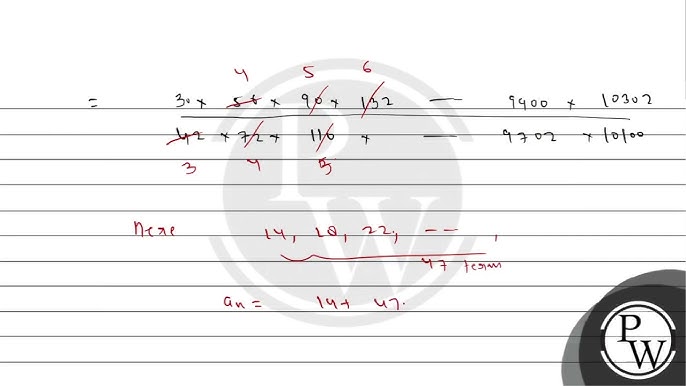 4 5 6
= 30 × 56 × 90 × 132 — 9900 × 10302
42 × 72 × 110 × — 9702 × 10100
3 4 5
Here 14, 18, 22, -- ,
47 term
an = 14+ 47.
PW
PW